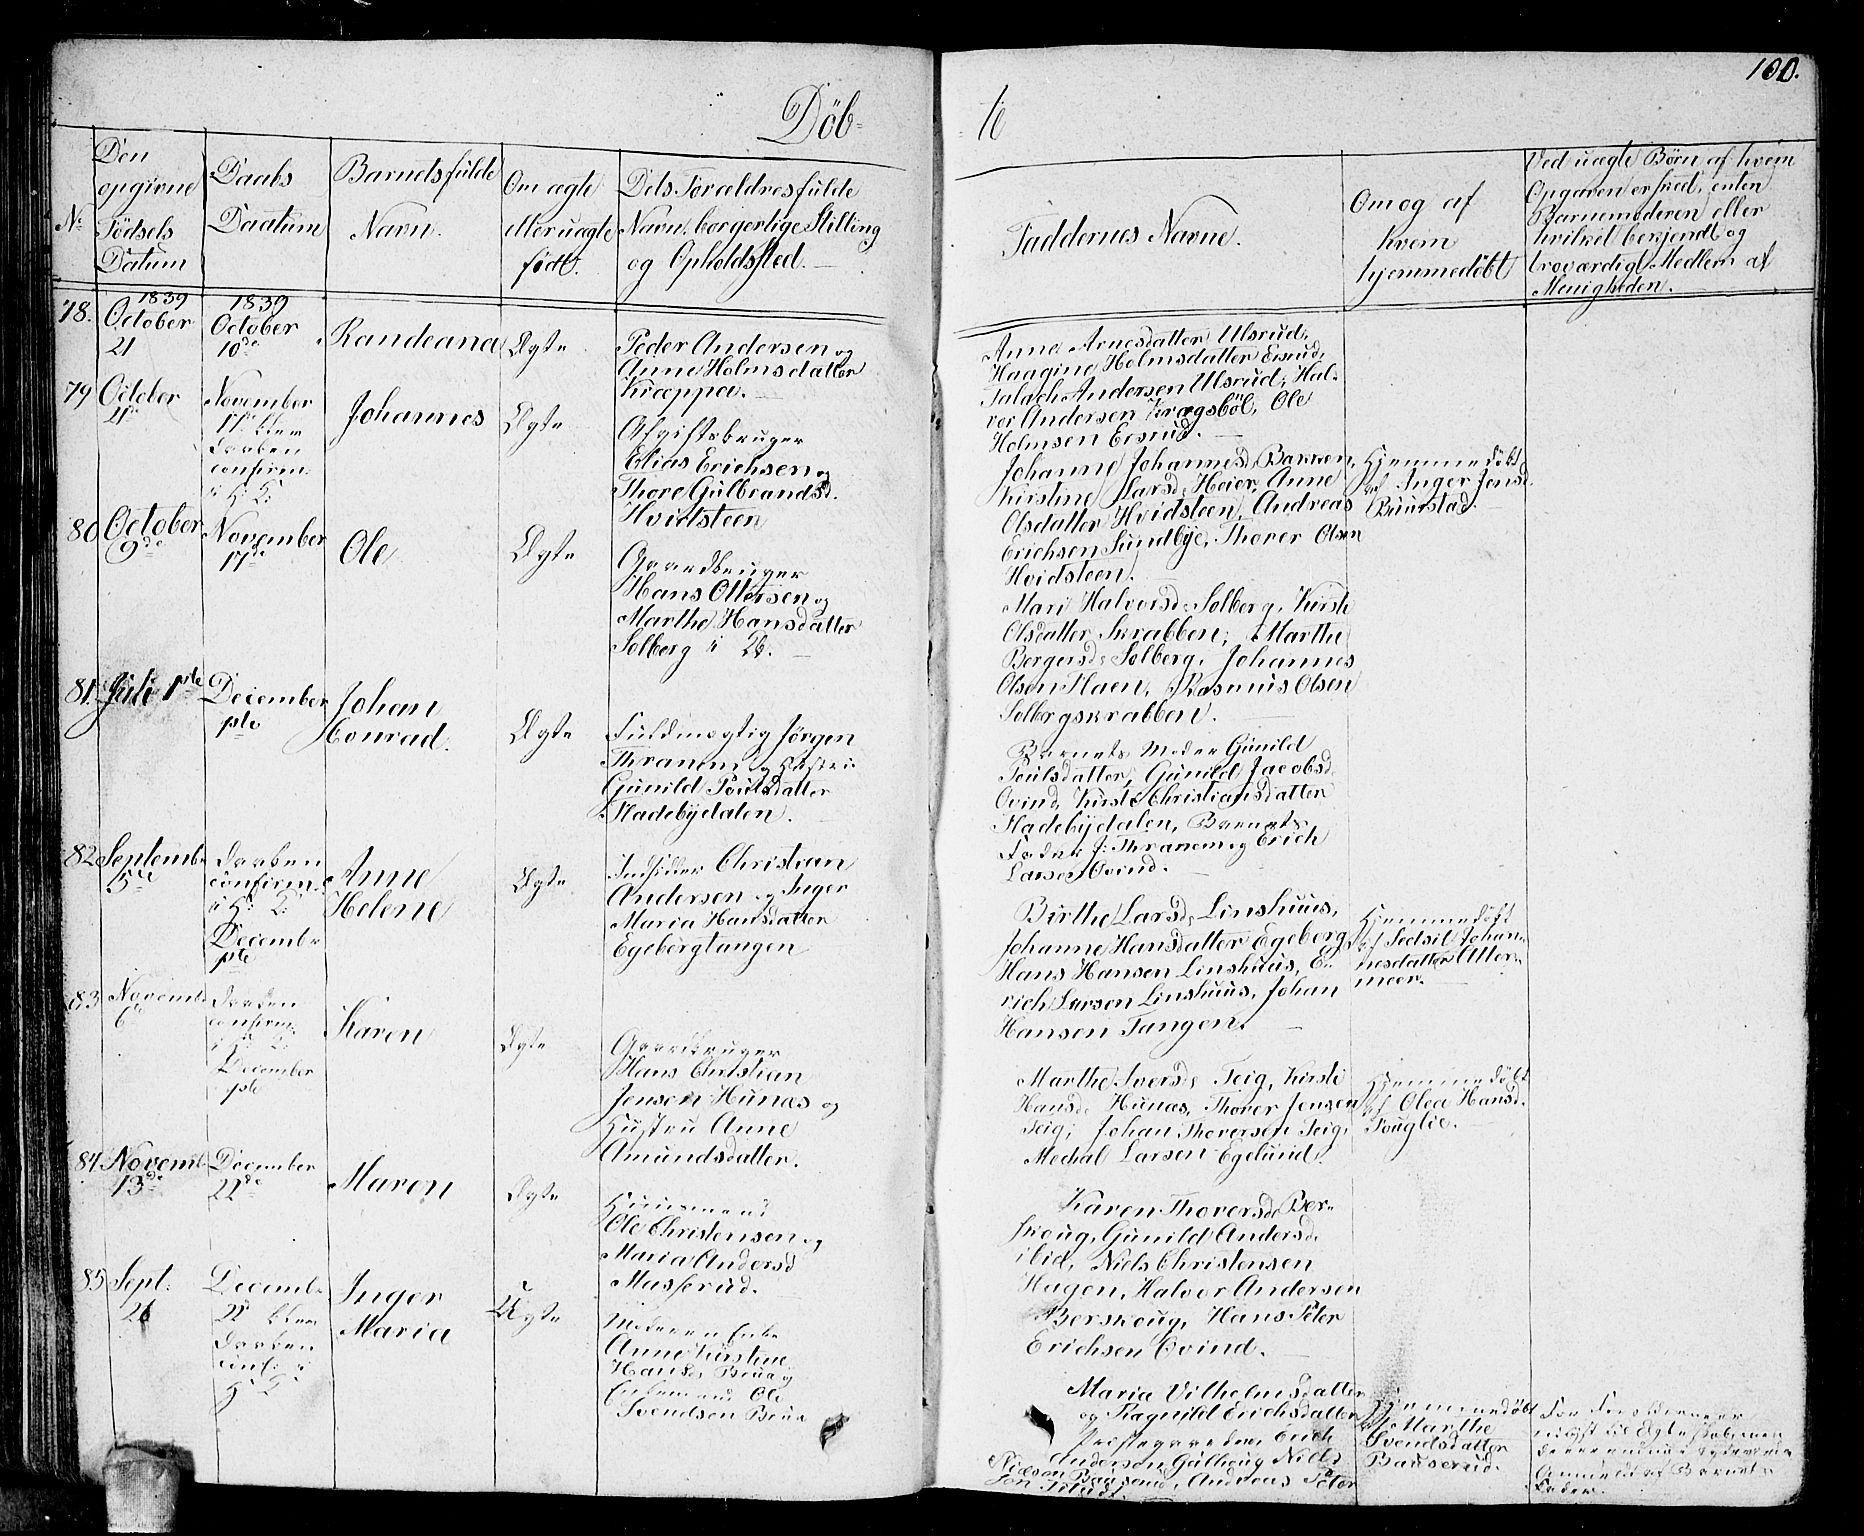 Döb-
te
100.
No
Den
opgivne
Födsels
Datum
Daabs
Daatum
Barnets fulde
Navn.
Om ægte
eller uægte
födt.
Dets Forældres fulde
Navn, borgerlige Stilling
og Opholdssted.
Faddernes Navne.
Om og af
hvem
hjemmedöbt
Ved uægte Børn af hvem
Opgaven er skeed, enten
Barnemoderen eller
hvilket bekjendt og
troværdigt Medlem af
Menigheden.
78.
1839
October
21
1839
October
10de
Randeana
Ægte
Peder Andersen og
Anne Holmsdatter
Kræppa.
Anne Arnesdatter Ulsrud,
Haagine Holmsdatter Ersrud,
Andersen Ulsrud, Hal-
vor Andersen Krogsböl, Ole
Holmsen Ersrud.
79
October
4de
November
17de blev
Daaben
confirm:
i H: K:
Johannes
Ægte
Afgiftsbruger
Elias Erichsen og
Thore Gulbrandsd.
Hvidsteen
Johanne Johannesd: Bakken,
Kirstine Larsd: Heier, Anne
Olsdatter Hvidsteen, Andreas
Erichsen Sundbye, Thorer Olsen
Hvidsteen.
Hjemmedöbt
af Inger Jensd.
Buurstad.
80
October
9de
November
17de
Ole
Ægte
Gaardbruger
Hans Ottersen og
Marthe Hansdatter
Solberg i
Mari Halvorsd: Solberg, Kirsti
Olsdatter Skrabben, Marthe
Bergersd: Solberg, Johannes
Olsen Haen, Rasmus Olsen
Solbergskrabben.
81.
Juli 1ste
December
1ste
Johan
Conrad.
Ægte
Fuldmægtig Jörgen
Thranem og Hustru
Gunild Poulsdatter
Hadebyedalen.
Barnets Moder Gunild
Poulsdatter, Gunild Jacobsd.
Ovind, Kirsti Christiansdatter
Hadebyedalen, Barnets
Fader J: Thranem og Erich
Larsen Ovind.
82
Septemb:
5te
Daaben
confirm:
i H: K:
Decembr
1ste
Anne
Helene
Ægte
Indsidder Christian
Andersen og Inger
Maria Hansdatter
Egebergtangen
Birthe Larsd: Linshuus,
Johanne Hansdatter Egeberg,
Hans Hansen Linshuus, E-
rich Larsen Linshuus, Johan
Hansen Tangen.
Hjemmedöbt
af Sidsil Johan-
nesdatter Utter-
meer.
83
Novemb:
6
Daaben
confirm:
i H: K:
December
1ste
Karen
Ægte
Gaardbruger
Hans Christian
Jensen Hunæs og
Hustru Anne
Amundsdatter.
Marthe Iversd: Teig, Kirsti
Hansd: Hunæs, Thorer Jensen
Teig, Johan Thorersen Teig,
Mechal Larsen Egelund.
Hjemmedöbt
af Olea Hansd.
Fouglie.
84
Novemb:
13de
December
22de
Maren
Ægte
Huusmand
Ole Christensen og
Maria Andersd
Musserud.
Karen Thorersd: Ber-
skoug, Gunild Andersd:
ibid, Niels Christensen
Hagen, Halvor Andersen
Berskoug, Hans Peter
Erichsen Ovind.
85
Sept:
26
Decemb:
22de blev
Daaben
conf: i
H: K:
Inger
Maria
Uægte
Moderen Enke
Anne Kirstine
Hansd: Brua og
Enkemand Ole
Svendsen Brua
Maria Vilhelmsdatter
og Ragnild Erichsdatter
Præstegaarden, Erich
Andersen Gullhoug, Niels
Bauserud, Andreas Peter
Hjemmedöbt
af Marthe
Svendsdatter
Bauserud.
For Forældrene er
lyst til Ægteskab, men
desuden
Anmeldt af Barnets
Fader.